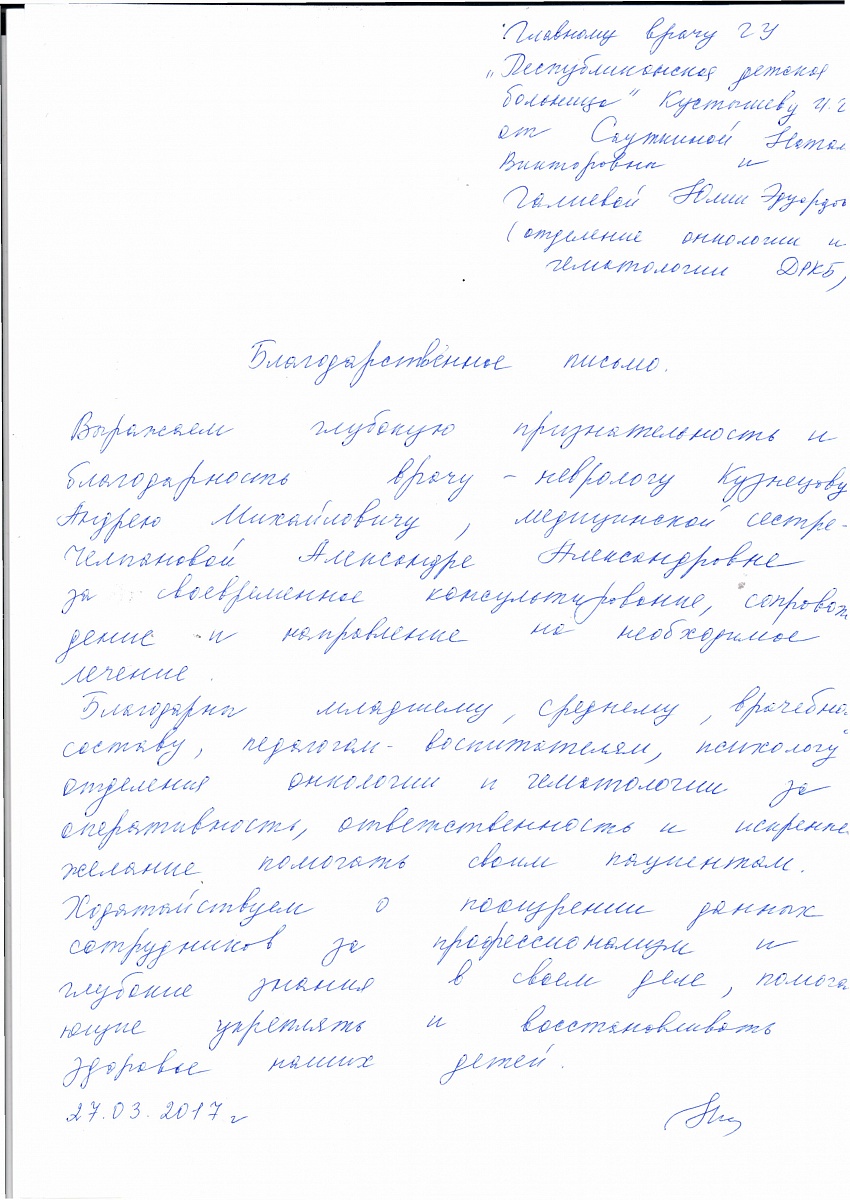 Главному врачу ГУ
"Республиканская детская
больница" Кустышеву И.Г
от Скуткиной Натал
Викторовны и
Галиевой Юлии Эдуардо
(отделение онкологии и
гематологии ДРКБ)
Благодарственное письмо.
Выражаем глубокую признательность и
благодарность врачу - неврологу Кузнецову
Андрею Михайловичу, медицинской сестре-
Челпановой Александре Александровне
за своевременное консультирование, сопровож
дение и направление на необходимое
лечение.
Благодарны младшему, среднему, врачебно
составу, педагогам- воспитателям, психологу
отделения онкологии и гематологии за
оперативность, ответственность и искренне
желание помогать своим пациентам.
Ходатайствуем о поощрении данных
сотрудников за профессионализм и
глубокие знания в своем деле, помога
ющие укреплять и восстановливать
здоровье наших детей.
27.03.2017г